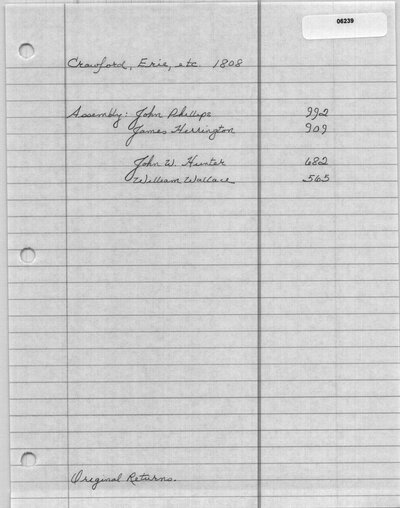 06239
Crawford, Erie, etc. 1808
Assembly: John Phillips 992
James Herrington 909
John W. Hunter 682
William Wallace 565
Original Returns.